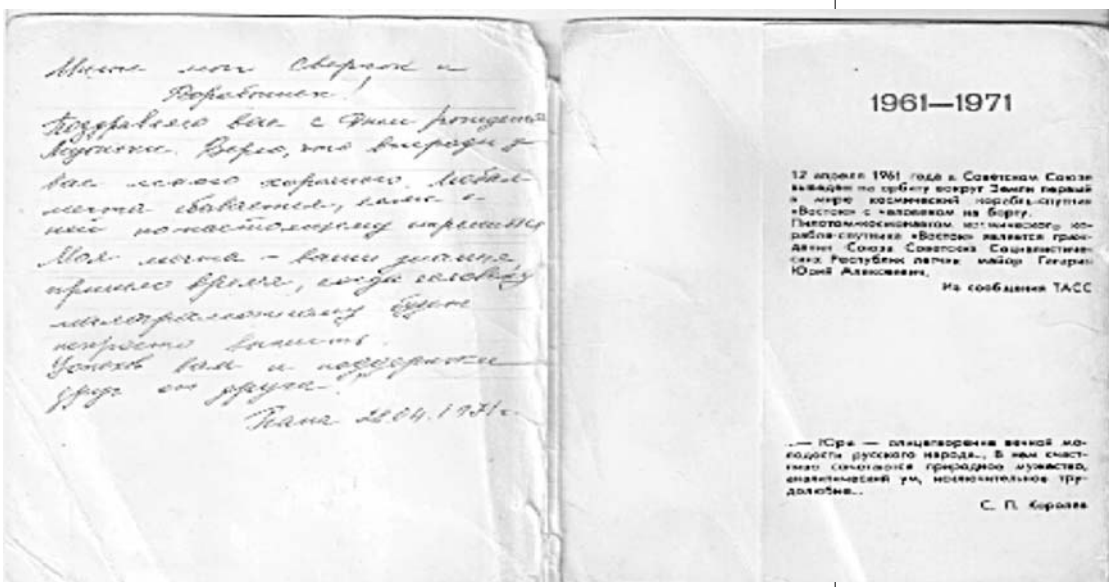 Милые мои Сверчок и
Воробышек!
Поздравляю вас с Днем рождения
Верю, что впереди у
вас много хорошего. Любая
мечта сбывается, если к
ней по-настоящему стремиться
Моя мечта – ваши
пришло время, когда человеку
будет
непросто выжить.
Успехов вам и поддержки
друг от друга.
Папа 22.04.1971 г.
1961—1971
12 апреля 1961 года в Советском Союзе
выведен на орбиту вокруг Земли первый
в мире космический корабль-спутник
«Восток» с человеком на борту.
Пилотом-космонавтом космического ко-
рабля-спутника «Восток» является граж-
данин Союза Советских Социалистиче-
ских Республик летчик майор Гагарин
Юрий Алексеевич.
Из сообщения ТАСС
...— Юра — олицетворение вечной мо-
лодости русского народа... В нем счаст-
ливо сочетаются природное мужество,
аналитический ум, исключительное тру-
долюбие...
С. П. Королев